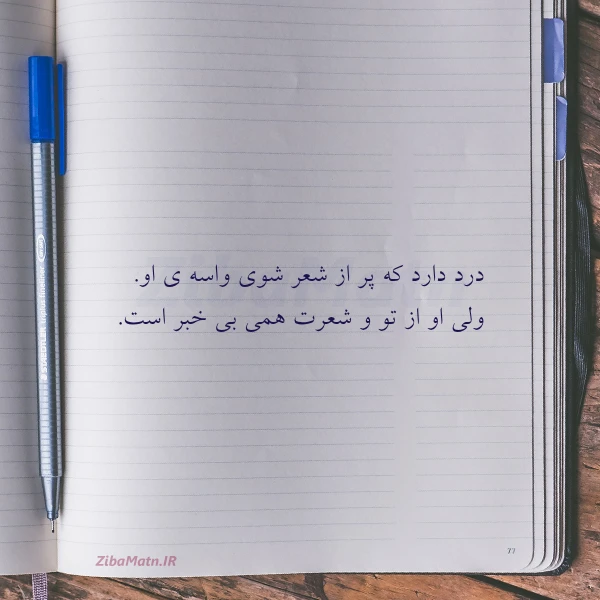 درد دارد که پر از شعر شوی واسه ی او.
ولی او از تو و شعرت همی بی خبر است.
77
ZibaMatn.IR